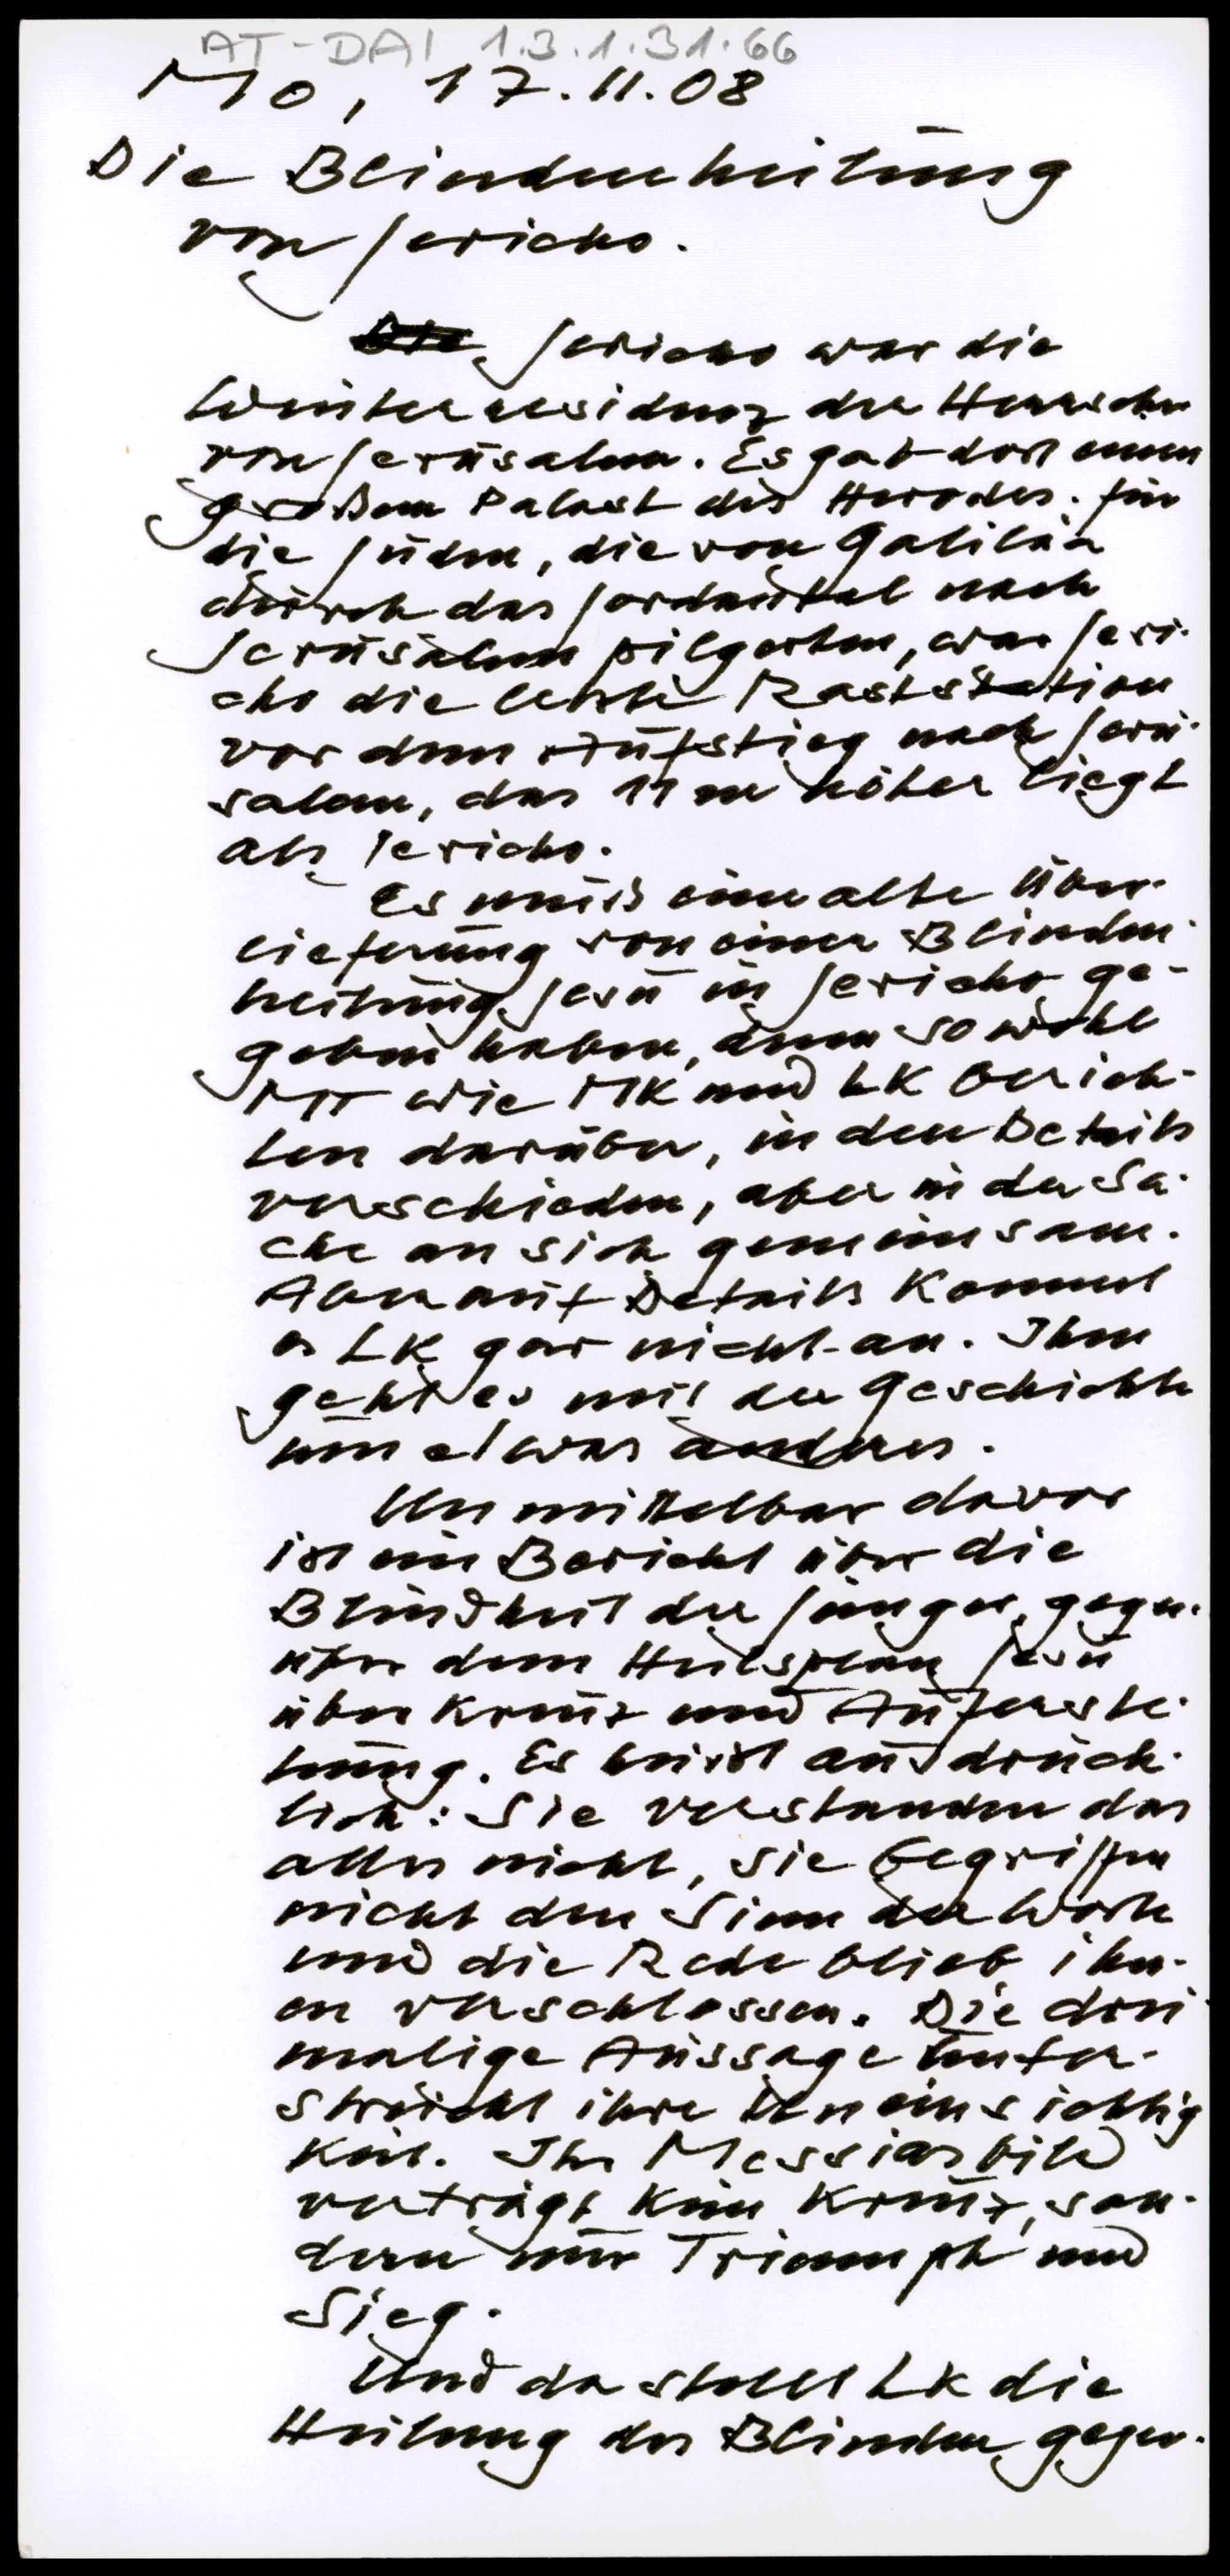 AT-DAI 1.3.1.31.66
Mo, 17.11.08
Die Blindenheilung
von Jericho.
Die Jericho war die
Winterresidenz der Herrscher
von Jerusalem. Es gab dort einen
großen Palast des Herodes. Für
die Juden, die von Galiläa
durch das Jordantal nach
Jerusalem pilgerten, war Jeri-
cho die letzte Raststation
vor dem Aufstieg nach Jeru-
salem, das 11 m höher liegt
als Jericho.
Es muß eine alte Über-
lieferung von einer Blinden-
heilung Jesu in Jericho ge-
geben haben, denn sowohl
MT wie MK und LK berich-
ten darüber, in den Details
verschieden, aber in der Sa-
che an sich gemeinsam.
Aber auf Details kommt
es LK gar nicht an. Ihm
geht es mit der Geschichte
um etwas anderes.
Unmittelbar davor
ist ein Bericht über die
Blindheit der Jünger gegen-
über dem Heilsplan Jesu
über Kreuz und Auferste-
hung. Es heißt ausdrück-
lich: Sie verstanden das
alles nicht, sie begriffen
nicht den Sinn der Worte
und die Rede blieb ihn-
en verschlossen. Die drei
malige Aussage unter-
streicht ihre Uneinsichtig
keit. Ihr Messiasbild
verträgt kein Kreuz, son-
dern nur Triumph und
Sieg.
Und da stellt LK die
Heilung des Blinden gegen-